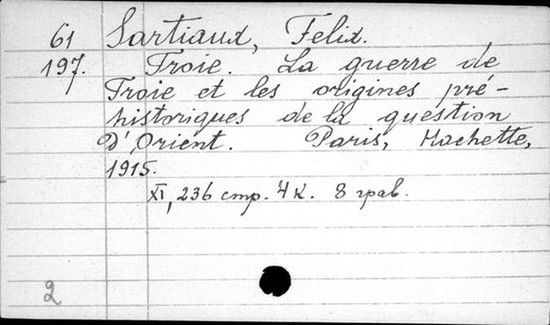 61 Sartiaux, Felix.
197. Troie. La guerre de
Troie et les origines pré-
historiques de la question
D'Orient. Paris, Hachette,
1915.
XI, 236 стр. 4 к. 8 грав.
2